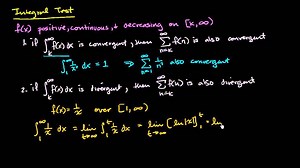 Integral Test
f(x) positive, continuous, + decreasing on [k,∞)
1. if ∫_k^∞ f(x)dx is convergent, then ∑_{n=k}^∞ f(n) is also convergent
∫_1^∞ 1/x² dx = 1 ⇒ ∑_{n=1}^∞ 1/n² is also convergent
2. if ∫_k^∞ f(x)dx is divergent, then ∑_{n=k}^∞ f(n) is also divergent
f(x) = 1/x over [1,∞)
∫_1^∞ 1/x dx = lim_{t→∞} ∫_1^t 1/x dx = lim_{t→∞} [ln|x|]_1^t = ln